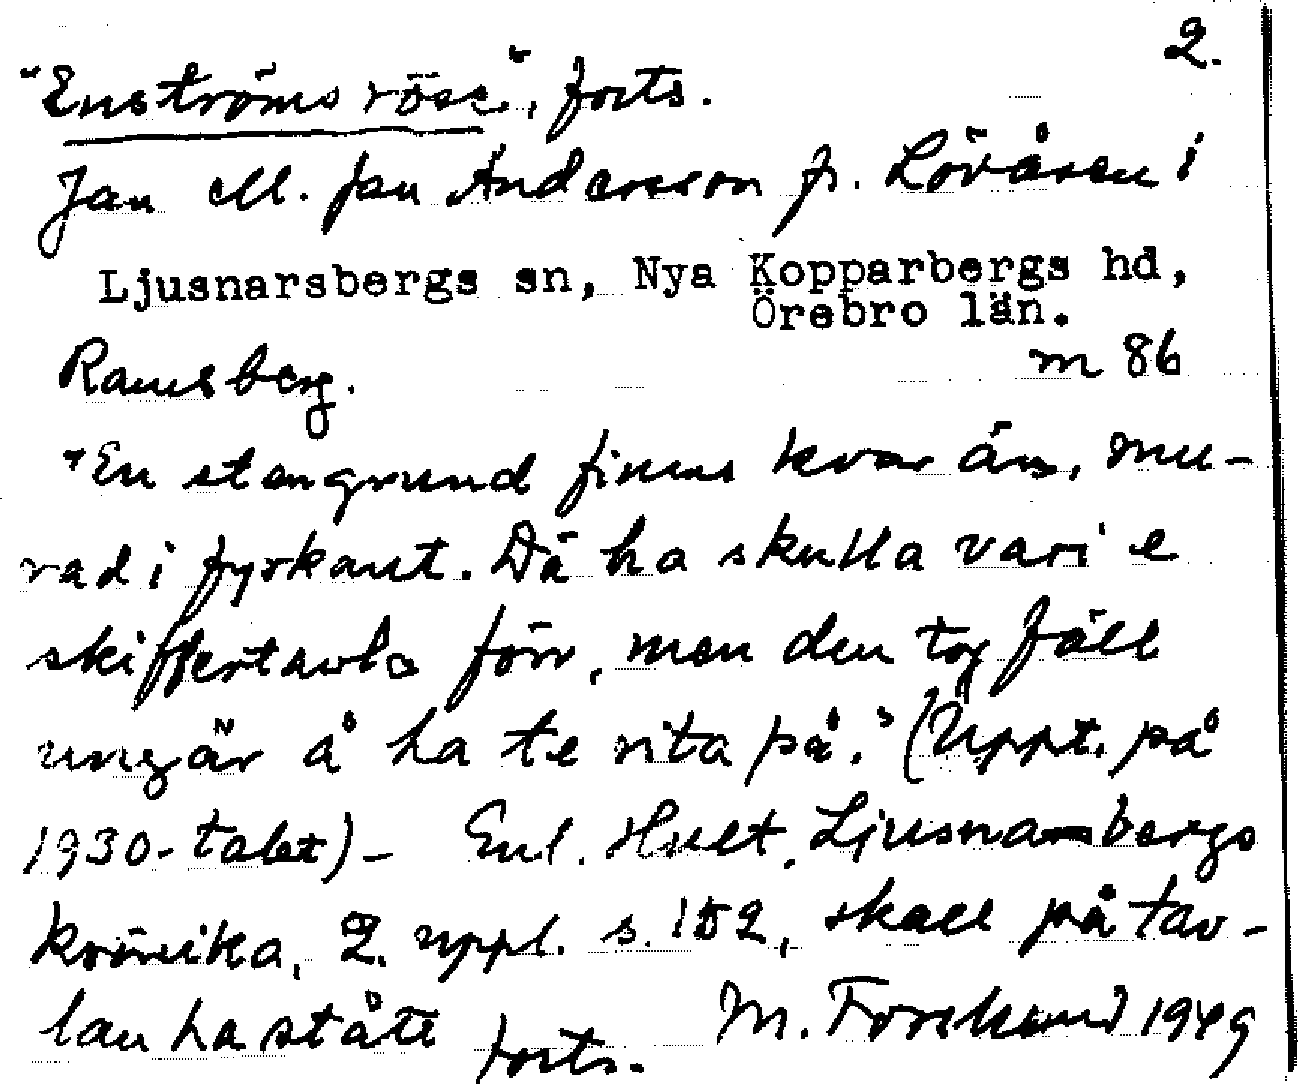 2.
"Enströms röse", forts.
Jan M. Jan Andersson fr. Lövåsen i
Ljusnarsbergs sn, Nya Kopparbergs hd,
Örebro län.
Ramsberg. m 86
"En stengrund finns kvar än, mu-
rad i fyrkant. Dä ha skulla vari e
skiffertavla förr, men den tog fäll
ungär å ha te rita på." (Uppt. på
1930-talet) - Enl. Hult, Ljusnarsbergs
krönika, 2. uppl. s. 152, skall på tav-
lan ha stått
forts. M. Forslund 1949